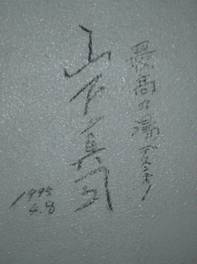 最高の湯デスネー!
山下真司
1995
4.8